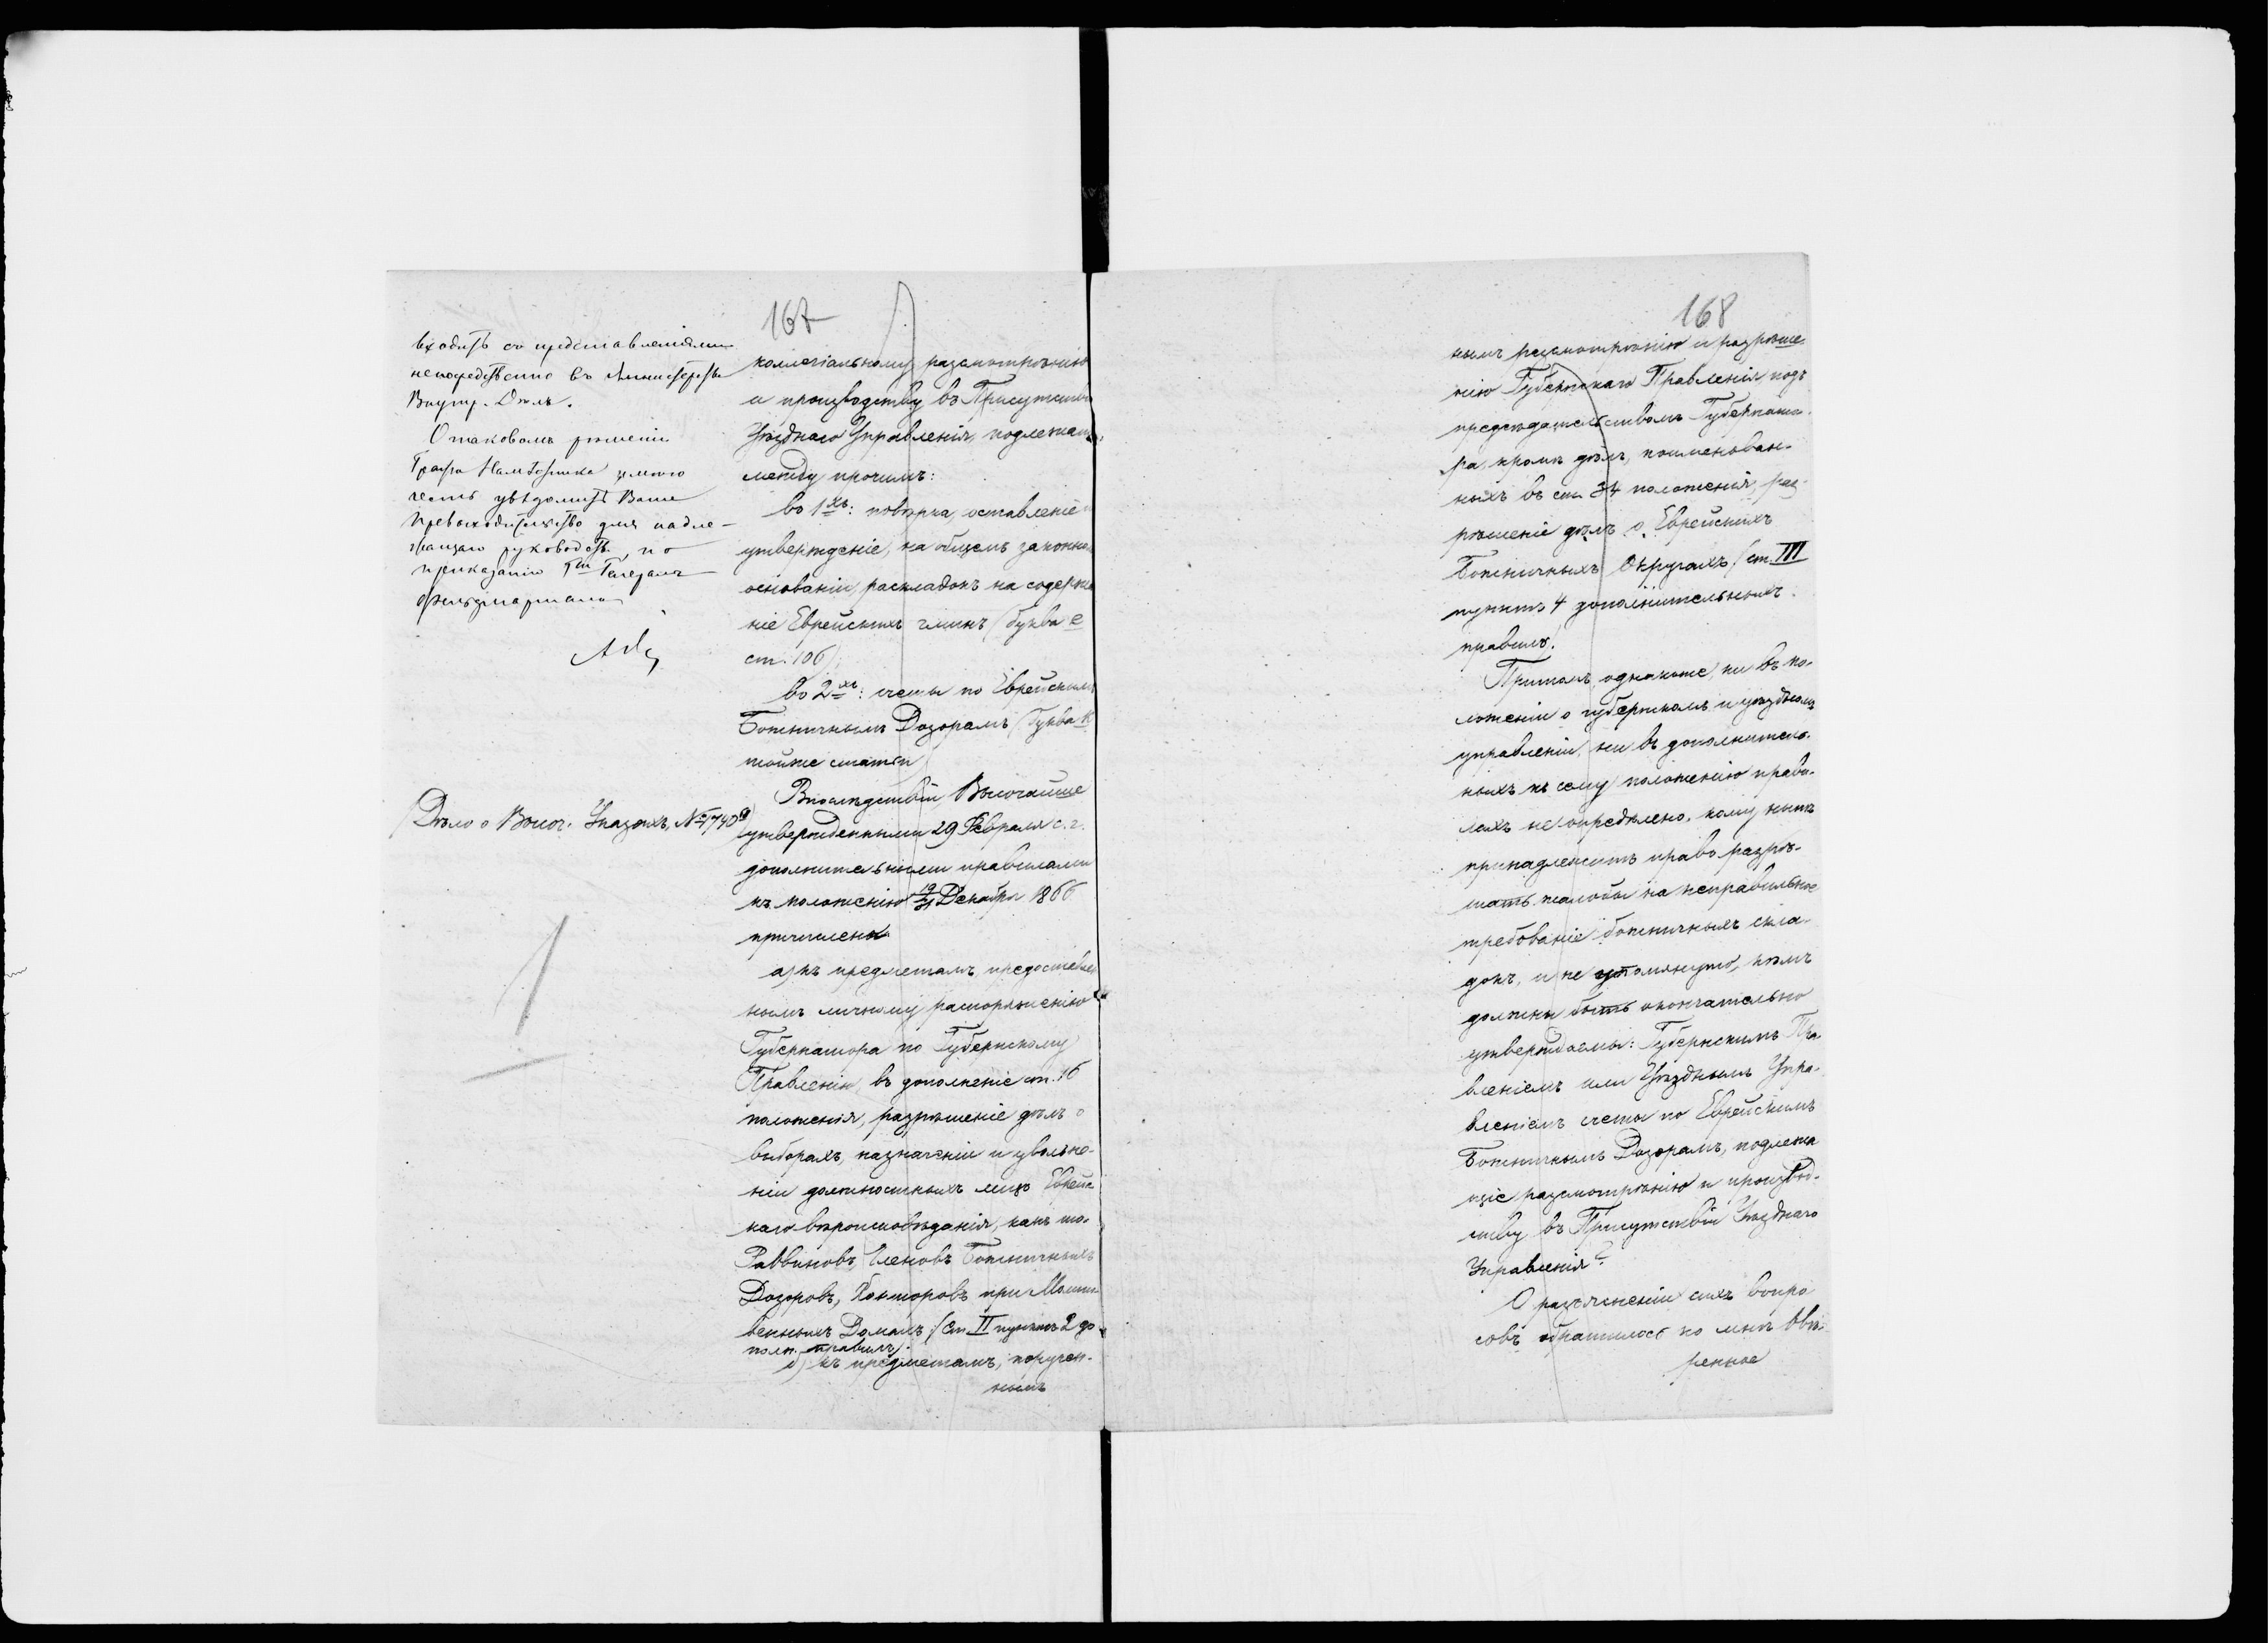 167
входитъ со представленіями
непосредственно въ Министерство
Внутр. Дѣлъ.
О таковомъ рѣшеніи
Графа Намѣстника имѣю
честь увѣдомить Ваше
Превосходительство для надле-
жащаго руководств., по
приказанію Гна Генералъ
Фельдмаршала
(Дѣло о Высоч. Указахъ, № 1740)
коллегіальному разсмотрѣнію
и производству въ Присутствіи
Уѣзднаго Управленія, подлежатъ
между прочимъ:
во 1хъ: повѣрка, оставленіе и
утвержденіе, на общемъ законномъ
основаніи, раскладокъ на содержа
ніе Еврейскихъ гминъ (буква е
ст. 106);
во 2хъ: счеты по Еврейскимъ
Божничнымъ Дозорамъ (буква к
тойже статьи)
Впослѣдствіи Высочайше
утвержденными 29 Февраля с. г.
дополнительными правилами
къ положенію 19/31 Декабря 1866
причислены
а) къ предметамъ предоставлен
нымъ личному распоряженію
Губернатора по Губернскому
Правленію, въ дополненіе ст. 16
положенія, разрѣшеніе дѣлъ о
выборахъ, назначеніи и увольне-
ніи должностныхъ лицъ Еврейс
каго вѣроисповѣданія, какъ то:
Раввиновъ, Членовъ Божничныхъ
Дозоровъ, Канторовъ при Молит
венныхъ Домахъ (ст. II пунктъ 2 до
полн. правилъ).
б) къ предметамъ, поручен-
нымъ
168
нымъ разсмотрѣнію и разрѣше
нію Губернскаго Правленія подъ
предсѣдательствомъ Губернато-
ра, кромѣ дѣлъ, поименован-
ныхъ въ ст. 34 положенія, раз-
рѣшеніе дѣлъ о Еврейскихъ
Божничныхъ Округахъ (ст. III
пунктъ 4 дополнительныхъ
правилъ).
Притомъ, однакоже, ни въ по-
ложеніи о губернскомъ и уѣздномъ
управленіи, ни въ дополнитель-
ныхъ къ сему положенію прави-
лахъ не опредѣлено, кому нынѣ
принадлежитъ право разрѣ-
шать жалобы на неправильное
требованіе божничныхъ скла-
докъ, и не упомянуто, кѣмъ
должны быть окончательно
утверждаемы: Губернскимъ Пра
вленіемъ или Уѣзднымъ Упра-
вленіемъ счеты по Еврейскимъ
Божничнымъ Дозорамъ, подлежа
щіе разсмотрѣнію и производ-
ству въ Присутствіи Уѣзднаго
Управленія?
О разъясненіи сихъ вопро
совъ обратилось ко мнѣ ввѣ-
ренное